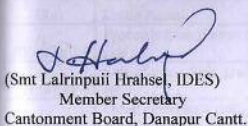 (Smt Lalrinpuii Hrahsel, IDES)
Member Secretary
Cantonment Board, Danapur Cantt.